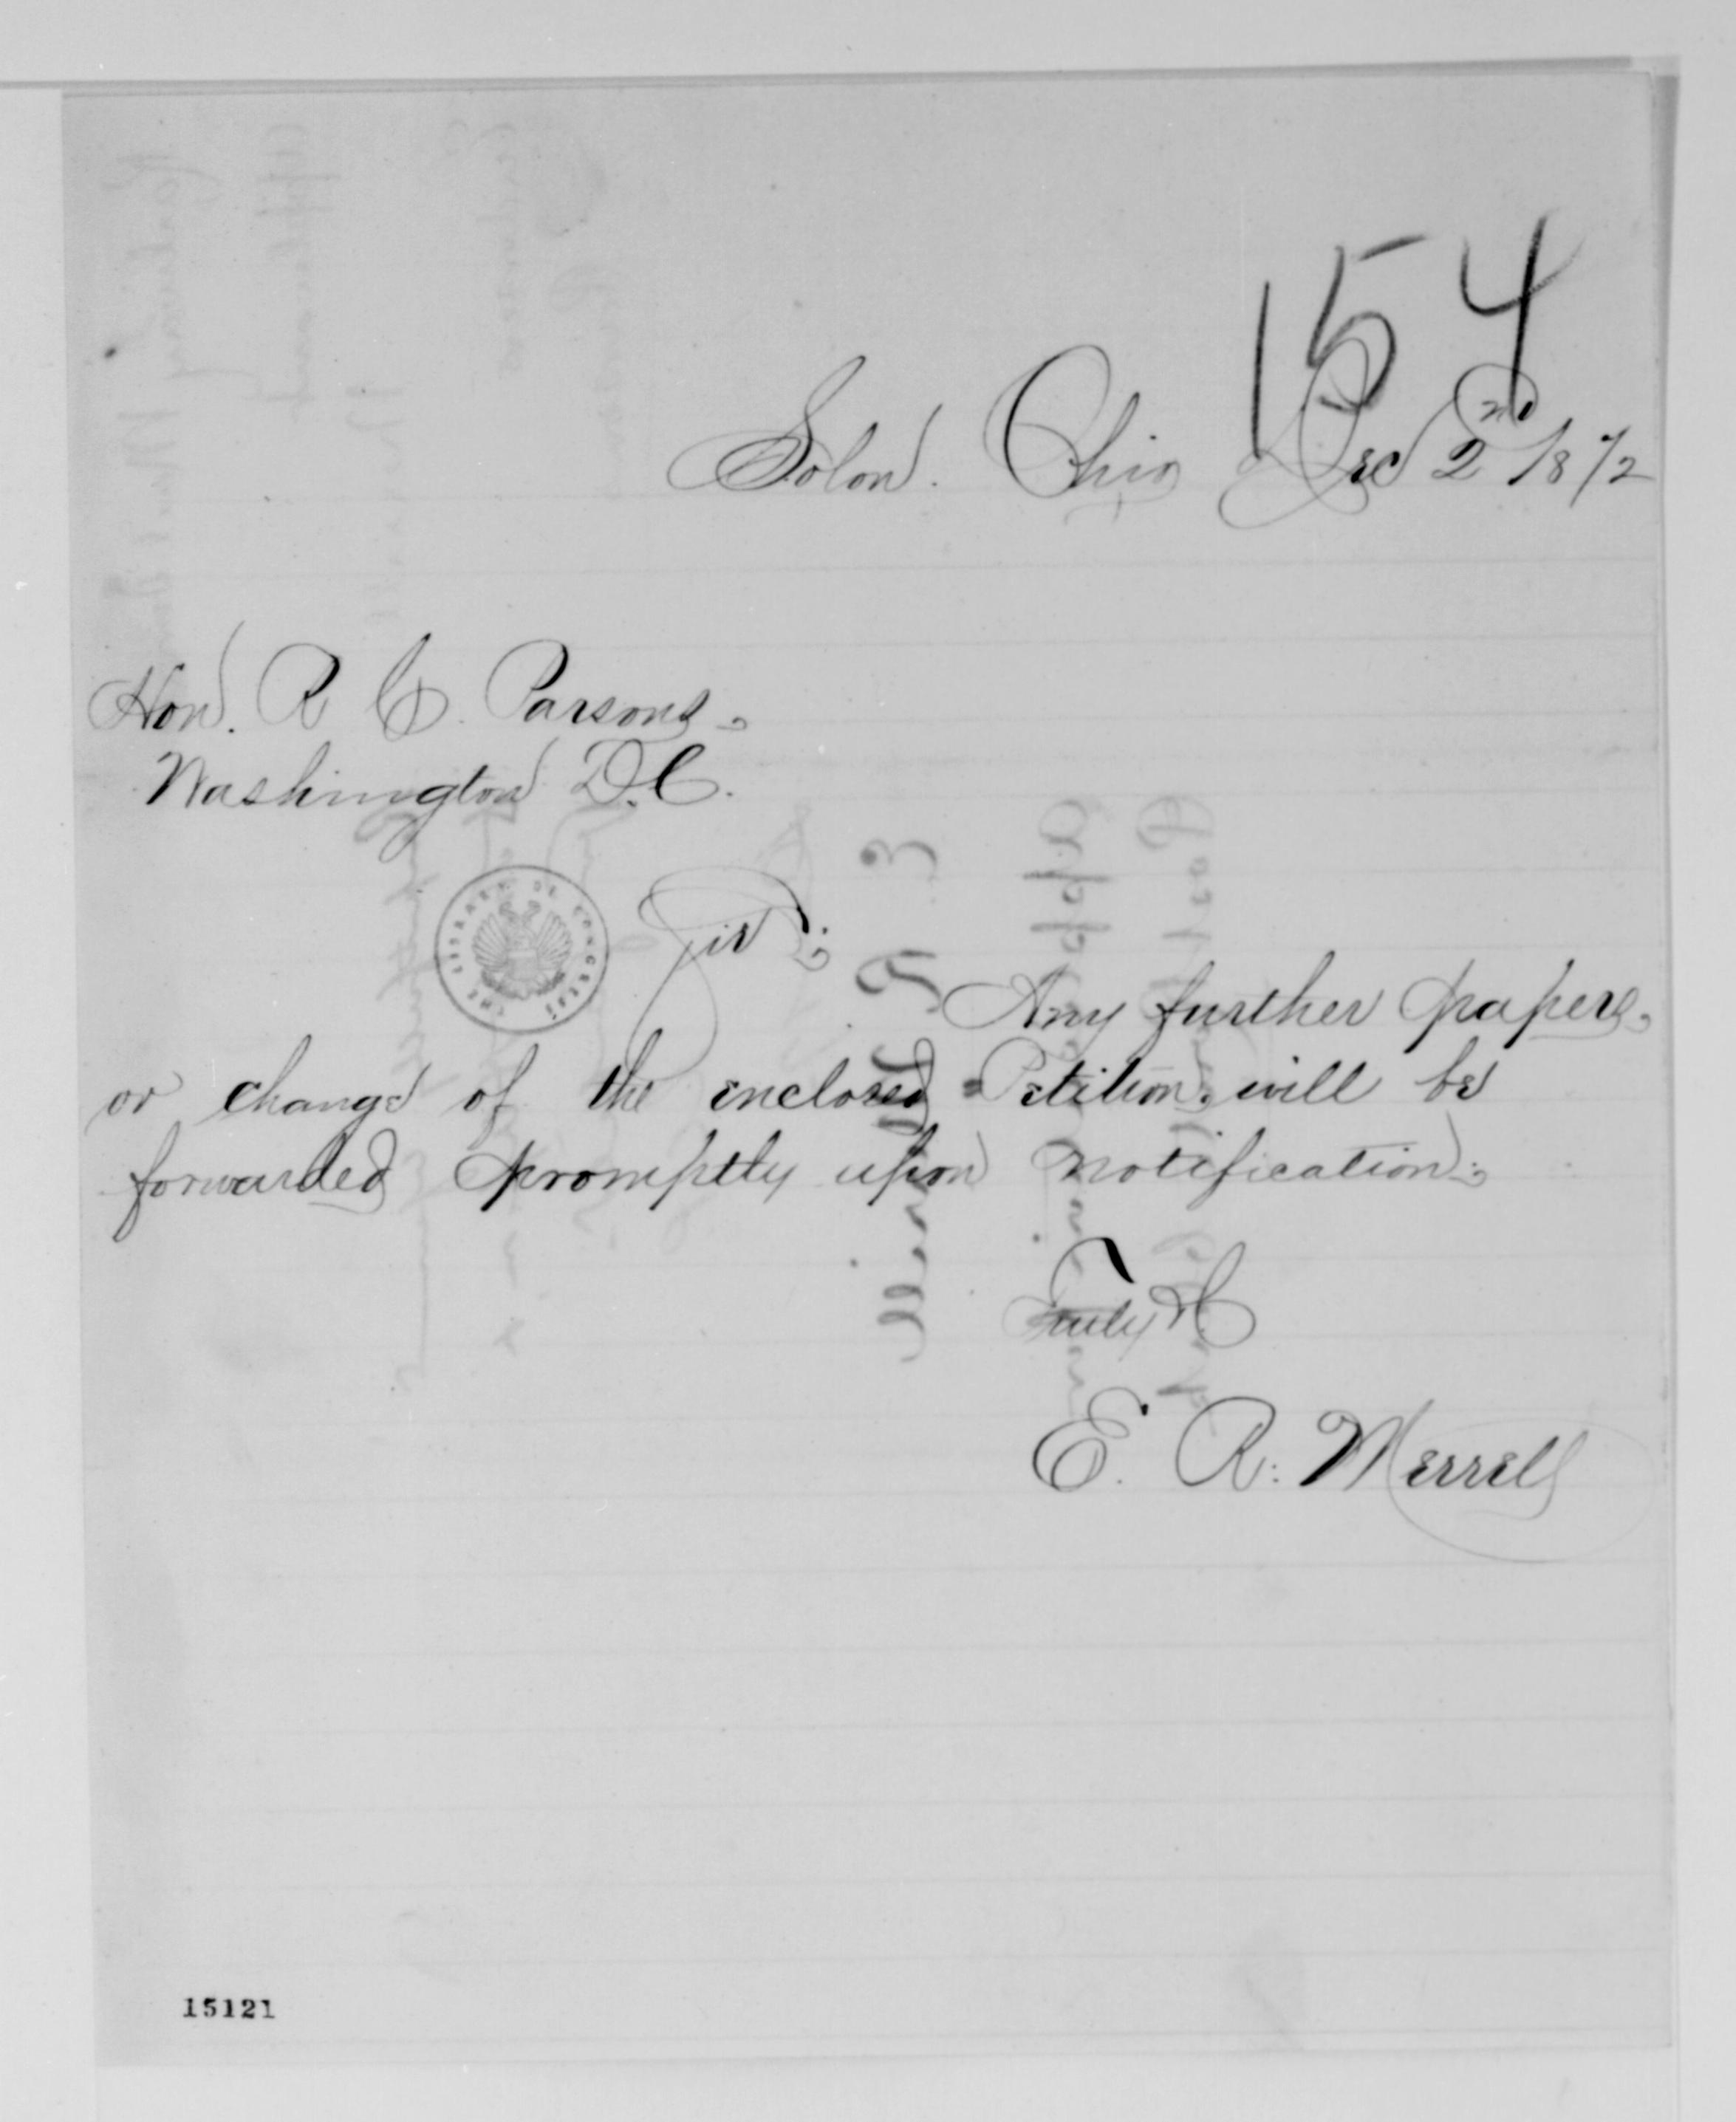 154
Solon. Ohio Dec 2nd 1872
Hon. R C. Parsons,
Washington D.C.
THE LIBRARY OF CONGRESS
Sir:
Any further papers,
or change of the enclosed Petition, will be
forwarded promptly upon notification.
Truly &c
E. R. Merrell
15121